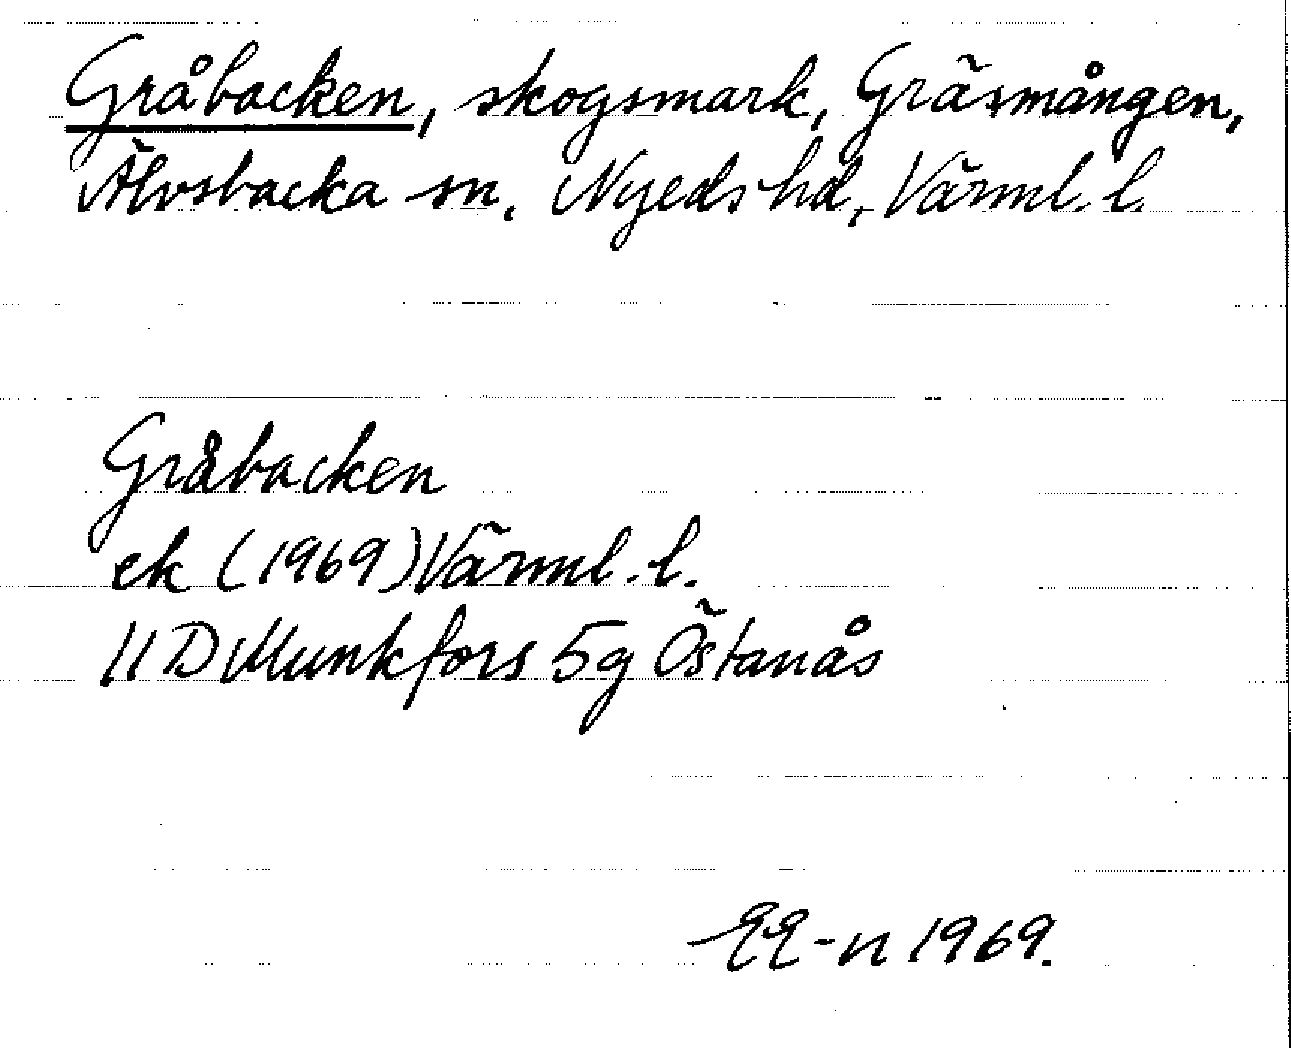 Gråbacken, skogsmark, Gräsmången,
Älvsbacka sn, Nyeds hd, Värml. l.
Gråbacken
ek (1969) Värml. l.
11 D Munkfors 5g Östanås
EE-n 1969.